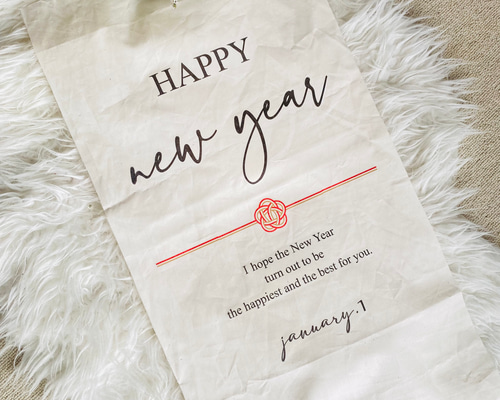 HAPPY
new year
I hope the New Year
turn out to be
the happiest and the best for you.
january.1